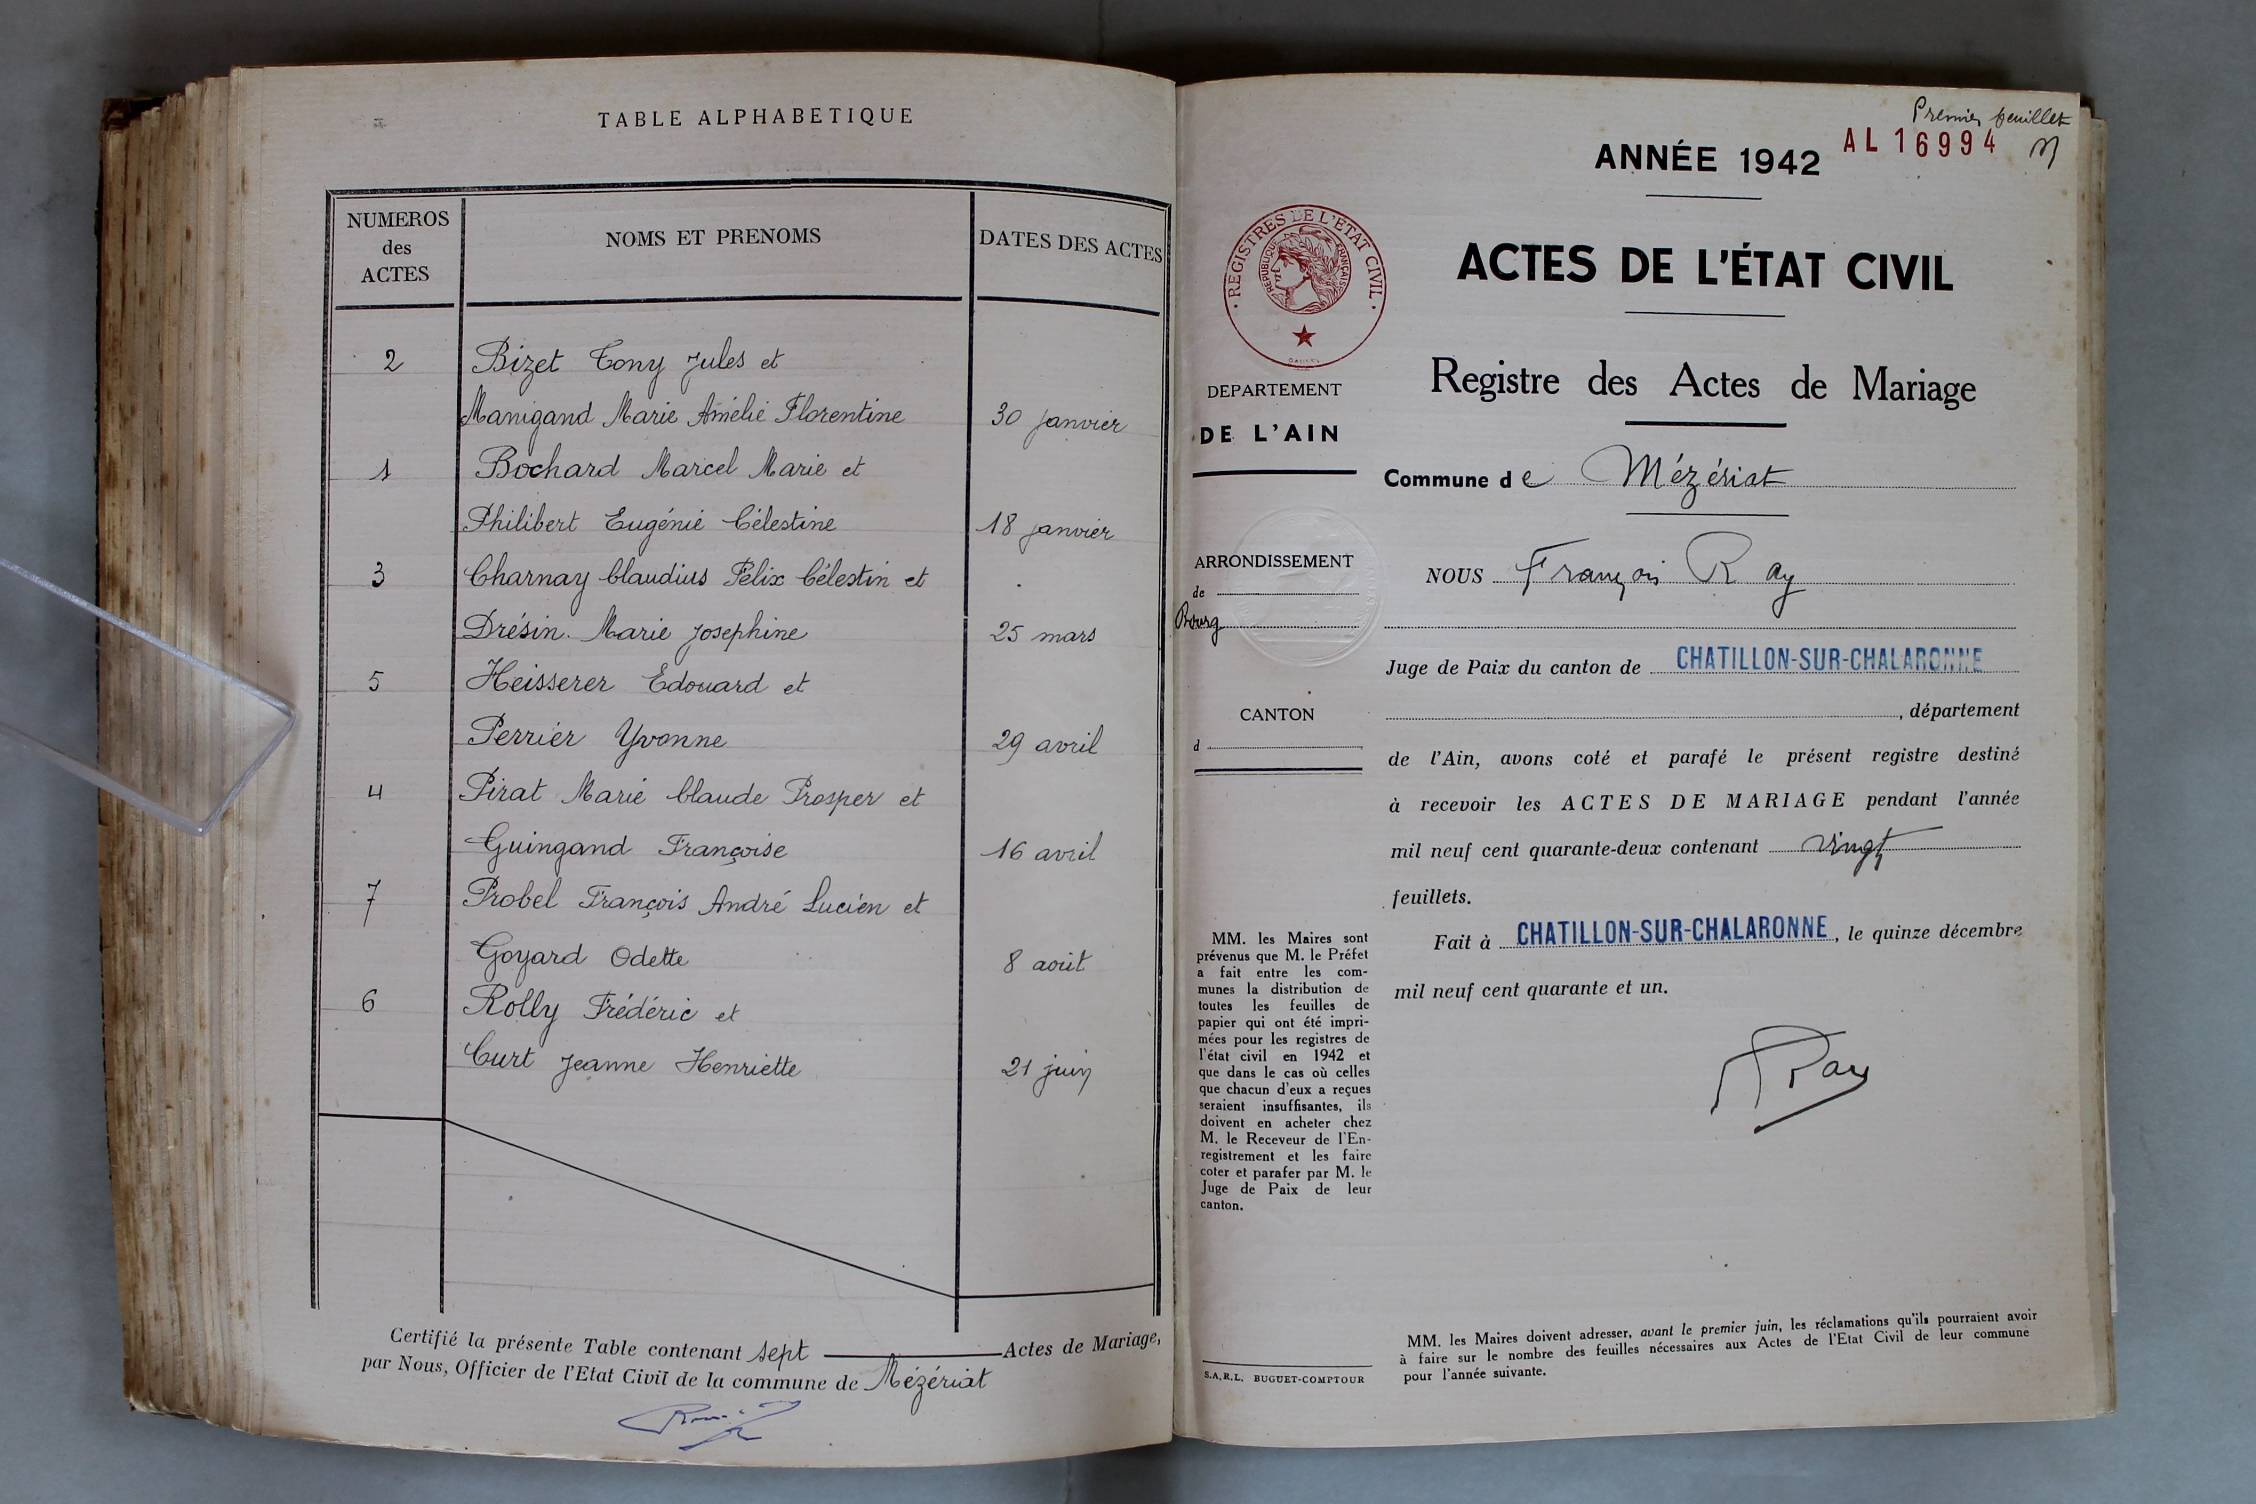 TABLE ALPHABETIQUE
NUMEROS
des
ACTES
NOMS ET PRENOMS
DATES DES ACTES
2 Bizet Tony Jules et
Manigand Marie Amélie Florentine 30 janvier
1 Bochard Marcel Marie et
Philibert Eugénie Célestine 18 janvier
3 Charnay Claudius Félix Célestin et
Drésin Marie Josephine 25 mars
5 Heisserer Edouard et
Perrier Yvonne 29 avril
4 Pirat Marie Claude Prosper et
Guingand Françoise 16 avril
7 Probel François André Lucien et
Goyard Odette 8 août
6 Rolly Frédéric et
Curt Jeanne Henriette 21 juin
Certifié la présente Table contenant sept Actes de Mariage,
par Nous, Officier de l'Etat Civil de la commune de Mézériat
Premier feuillet
ANNÉE 1942
AL 16994
REGISTRES DE L'ÉTAT CIVIL
RÉPUBLIQUE FRANÇAISE
ACTES DE L'ÉTAT CIVIL
Registre des Actes de Mariage
DEPARTEMENT
DE L'AIN
ARRONDISSEMENT
de
Bourg
CANTON
d
MM. les Maires sont
prévenus que M. le Préfet
a fait entre les com-
munes la distribution de
toutes les feuilles de
papier qui ont été impri-
mées pour les registres de
l'état civil en 1942 et
que dans le cas où celles
que chacun d'eux a reçues
seraient insuffisantes, ils
doivent en acheter chez
M. le Receveur de l'En-
registrement et les faire
coter et parafer par M. le
Juge de Paix de leur
canton.
S.A.R.L. BUGUET-COMPTOUR
Commune de Mézériat
NOUS François Ray
Juge de Paix du canton de CHATILLON-SUR-CHALARONNE
, département
de l'Ain, avons coté et parafé le présent registre destiné
à recevoir les ACTES DE MARIAGE pendant l'année
mil neuf cent quarante-deux contenant vingt
feuillets.
Fait à CHATILLON-SUR-CHALARONNE, le quinze décembre
mil neuf cent quarante et un.
Ray
MM. les Maires doivent adresser, avant le premier juin, les réclamations qu'ils pourraient avoir
à faire sur le nombre des feuilles nécessaires aux Actes de l'Etat Civil de leur commune
pour l'année suivante.